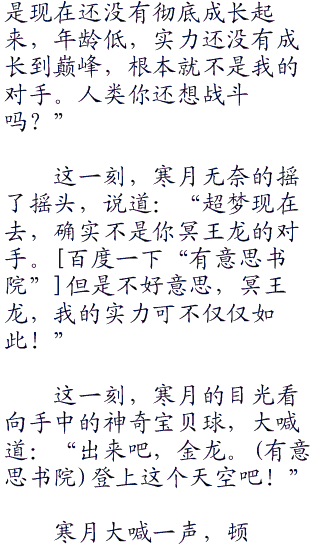 是现在还没有彻底成长起
来，年龄低，实力还没有成
长到巅峰，根本就不是我的
对手。人类你还想战斗
吗？”
这一刻，寒月无奈的摇
了摇头，说道：“超梦现在
去，确实不是你冥王龙的对
手。[百度一下“有意思书
院”]但是不好意思，冥王
龙，我的实力可不仅仅如
此！”
这一刻，寒月的目光看
向手中的神奇宝贝球，大喊
道：“出来吧，金龙。(有意
思书院)登上这个天空吧！”
寒月大喊一声，顿